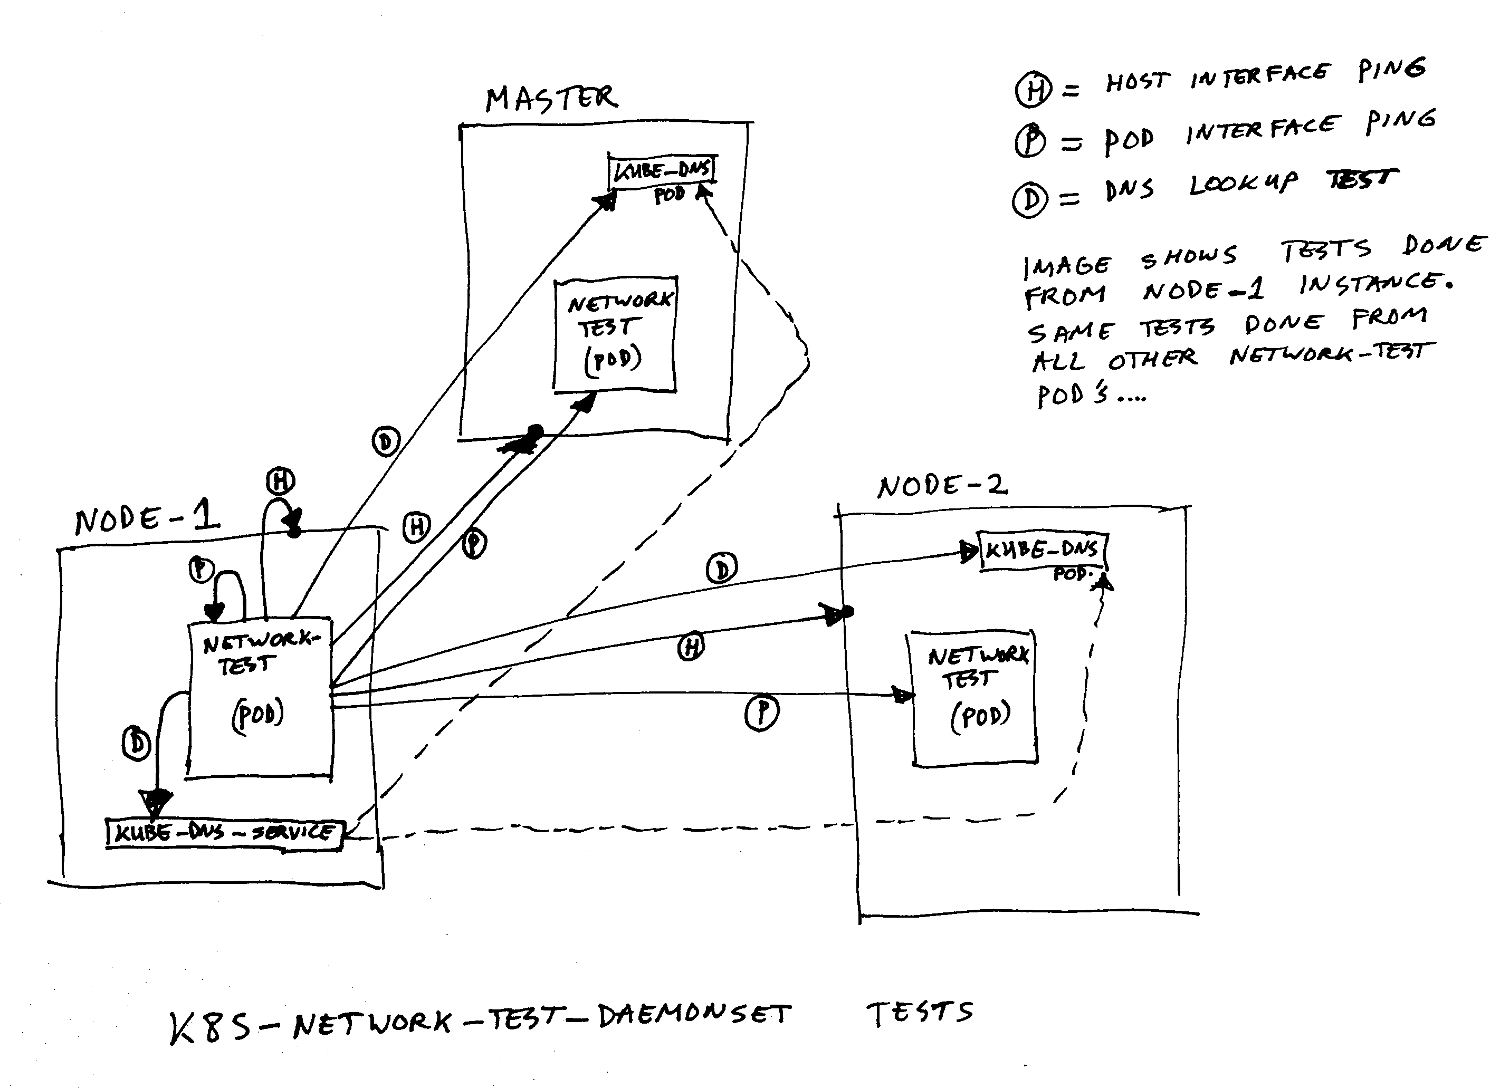 MASTER
KUBE-DNS
POD
NETWORK
TEST
(POD)
Ⓗ = HOST INTERFACE PING
Ⓟ = POD INTERFACE PING
Ⓓ = DNS LOOKUP TEST
IMAGE SHOWS TESTS DONE
FROM NODE-1 INSTANCE.
SAME TESTS DONE FROM
ALL OTHER NETWORK-TEST
POD'S....
D
H
H
P
NODE-1
P
NETWORK-
TEST
(POD)
D
KUBE-DNS-SERVICE
NODE-2
D
KUBE-DNS
POD.
H
NETWORK
TEST
(POD)
P
K8S-NETWORK-TEST-DAEMONSET TESTS